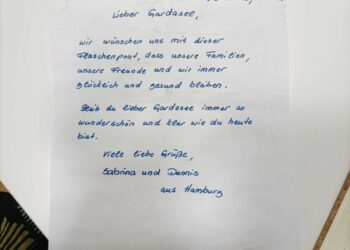 Lieber Gardasee,
wir wünschen uns mit dieser
Flaschenpost, dass unsere Familien,
unsere Freunde und wir immer
glücklich und gesund bleiben.
Bleib du lieber Gardasee immer so
wunderschön und klar wie du heute
bist.
Viele liebe Grüße,
Sabrina und Dennis
aus Hamburg